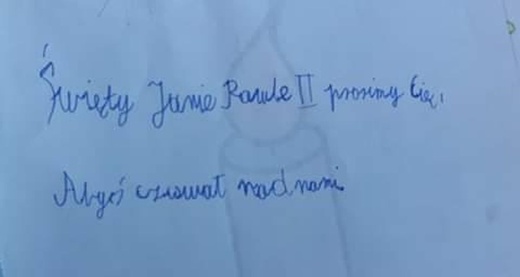 Święty Janie Pawle II prosimy Cię,
Abyś czuwał nad nami